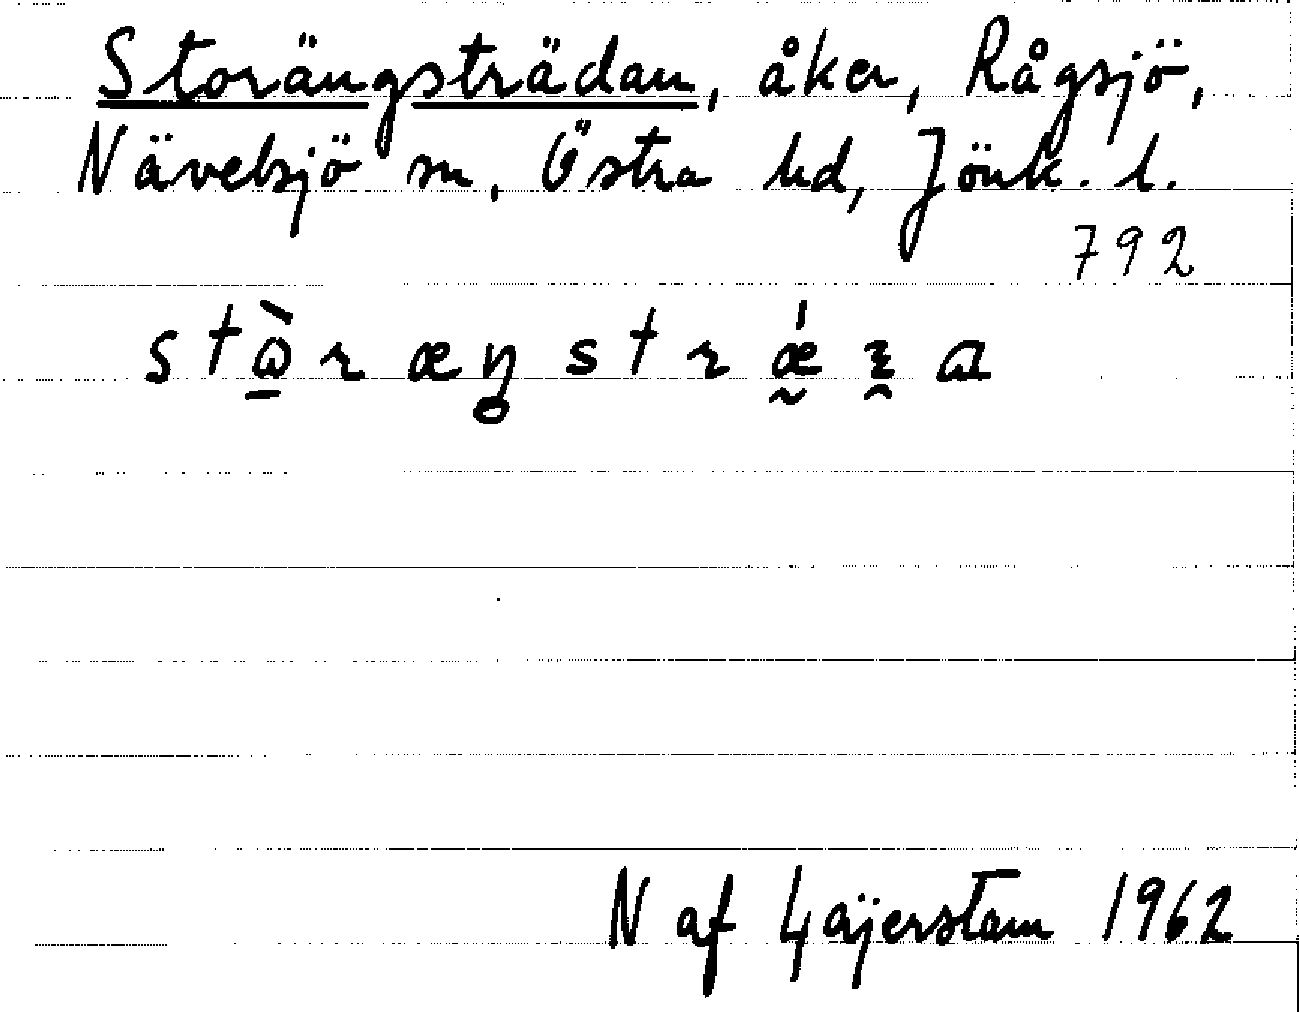 Storängsträdan, åker, Rågsjö,
Nävelsjö sn, Östra hd, Jönk. l.
792
N af Gäijerstam 1962